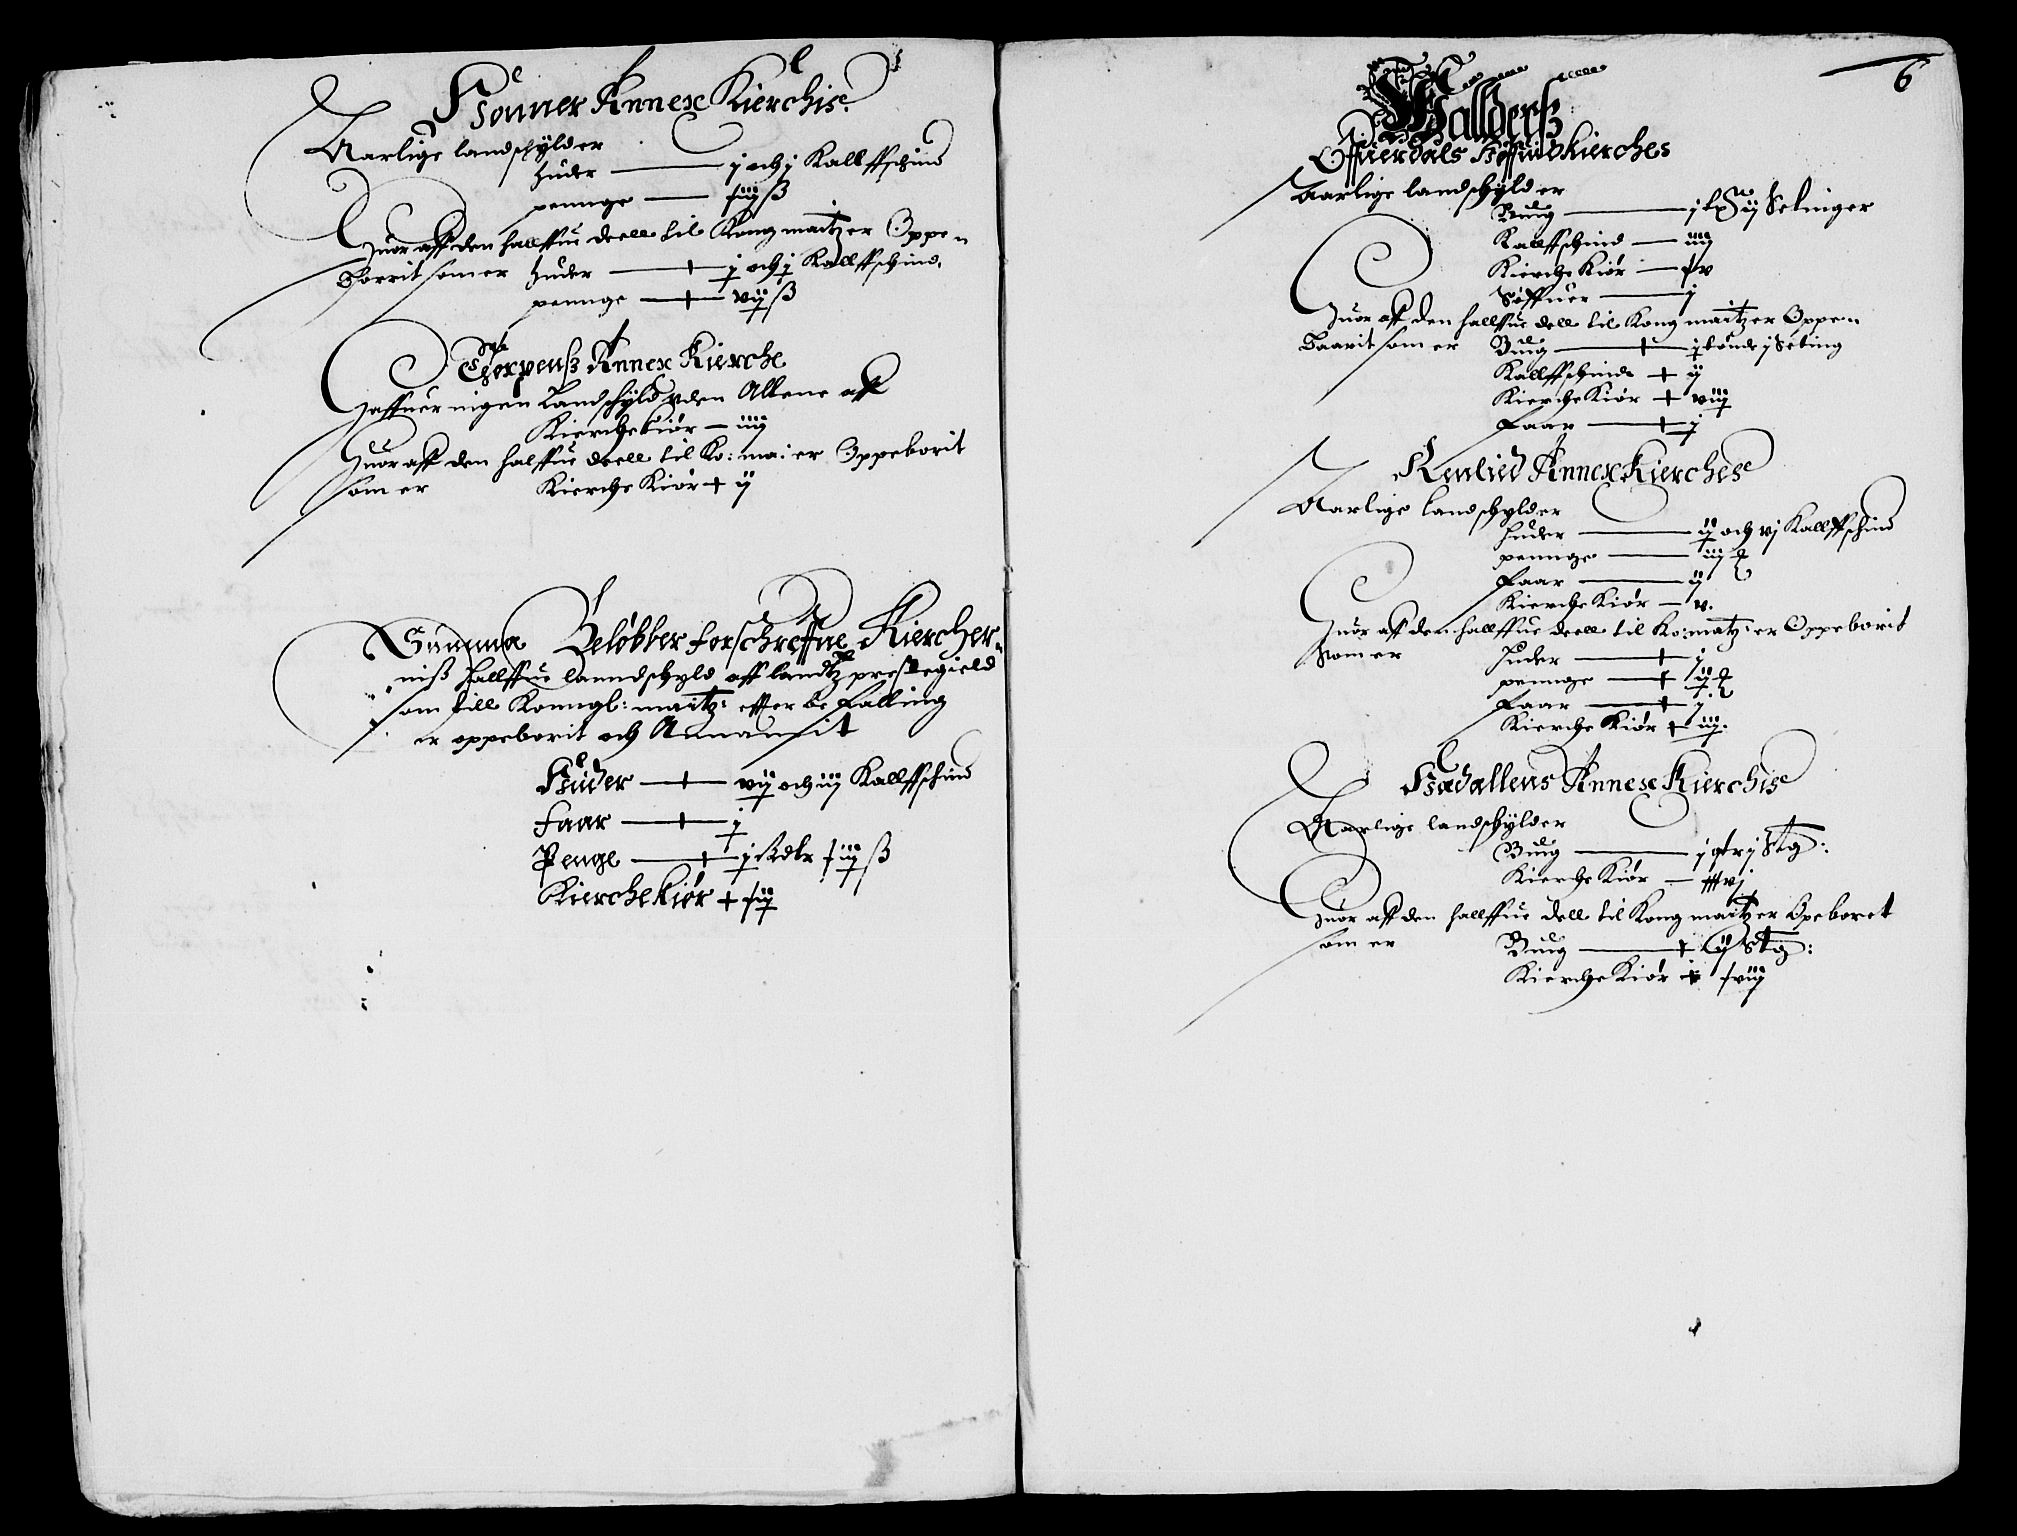 Hønner Annex Kierchis
Aarlige landschylder
huder — j och j Kallffschind
pennge — xiiij ß
Huor aff den hallffue deell til Kong maitz er Oppen
Borrit som er huder — j och j Kallffschind.
pennge — vij ß
Thorpens Annex Kierche
Haffuer ingen Landschyld vden Allene aff
Kierche kiør — iiij
Huor aff den halffue deell til Ko: ma: er Oppeborit
som er Kierche Kiør ij
Summa Beløbber forschreffne Kiercher-
niß Hallffue lanndschyld aff landtz prestegield
som till Konngl: maitz: effter be Falling
er oppeborit och Annamit
Huder — vij och iiij Kallffschind
Faar — j
Penge — j Rdlr xiiij ß
Kierchekiør xiij
6
Walderß
Øffuerdals Høffuidkierches
Aarlige landschylder
Buig — ij Setinger
Kallffschind — iiij
Kierche Kiør — xv
Søffuer — j
Huor aff den hallffue dell til Kong maitz er Oppen
Baarit som er Buig — j tønde j Seting
Kallffschinde ij
Kierche Kiør viij
Faar — j
Renlied Annex Kierches
Aarlige landschylder
huder — ij och vj Kallffschind
pennge — iiij ß
Faar — ij
Kierche Kiør — v.
Huor aff den hallffue deell til Ko: matz: er Oppeborit
som er Huder — j
pennge — ij ß
Faar — j
Kierche Kiør iij.
Hædallens Annex Kierchis
Aarlige landschylder
Buig — j qtr j Stg:
Kierche Kiør — xxxvj
Huor aff den hallffue dell til Kong maitz er Opeboret
som er Buig — ij Stg:
Kierche Kiør xviij